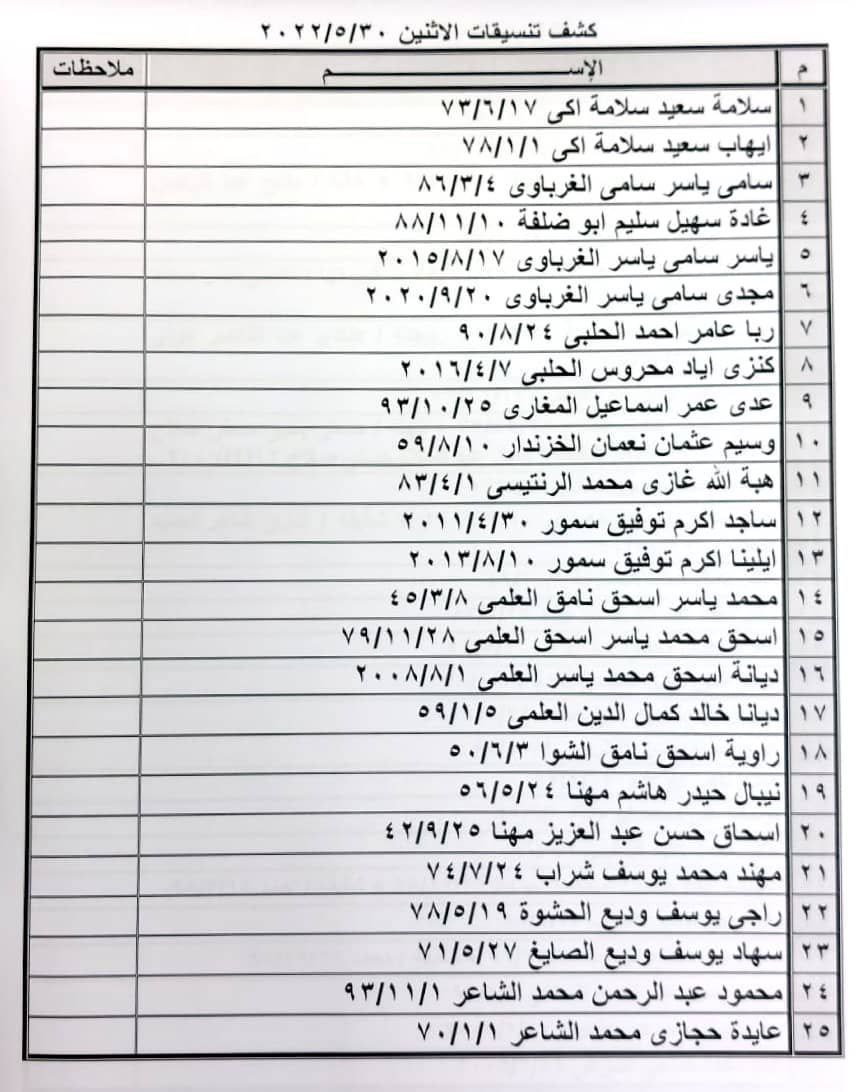 كشف تنسيقات الاثنين ٢٠٢٢/٥/٣٠
م الإســــــم ملاحظات
١ سلامة سعيد سلامة اكى ٧٣/٦/١٧
٢ ايهاب سعيد سلامة اكى ٧٨/١/١
٣ سامى ياسر سامى الغرباوى ٨٦/٣/٤
٤ غادة سهيل سليم ابو ضلفة ٨٨/١١/١٠
٥ ياسر سامى ياسر الغرباوى ٢٠١٥/٨/١٧
٦ مجدى سامى ياسر الغرباوى ٢٠٢٠/٩/٢٠
٧ ربا عامر احمد الحلبى ٩٠/٨/٢٤
٨ كنزى اياد محروس الحلبى ٢٠١٦/٤/٧
٩ عدى عمر اسماعيل المغارى ٩٣/١٠/٢٥
١٠ وسيم عثمان نعمان الخزندار ٥٩/٨/١٠
١١ هبة الله غازى محمد الرنتيسى ٨٣/٤/١
١٢ ساجد اكرم توفيق سمور ٢٠١١/٤/٣٠
١٣ ايلينا اكرم توفيق سمور ٢٠١٣/٨/١٠
١٤ محمد ياسر اسحق نامق العلمى ٤٥/٣/٨
١٥ اسحق محمد ياسر اسحق العلمى ٧٩/١١/٢٨
١٦ ديانة اسحق محمد ياسر العلمى ٢٠٠٨/٨/١
١٧ ديانا خالد كمال الدين العلمى ٥٩/١/٥
١٨ راوية اسحق نامق الشوا ٥٠/٦/٣
١٩ نيبال حيدر هاشم مهنا ٥٦/٥/٢٤
٢٠ اسحاق حسن عبد العزيز مهنا ٤٢/٩/٢٥
٢١ مهند محمد يوسف شراب ٧٤/٧/٢٤
٢٢ راجى يوسف وديع الحشوة ٧٨/٥/١٩
٢٣ سهاد يوسف وديع الصايغ ٧١/٥/٢٧
٢٤ محمود عبد الرحمن محمد الشاعر ٩٣/١١/١
٢٥ عايدة حجازى محمد الشاعر ٧٠/١/١